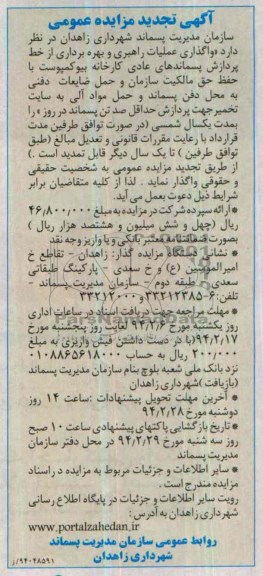 آگهی تجدید مزایده عمومی
سازمان مدیریت پسماند شهرداری زاهدان در نظر
دارد «واگذاری عملیات راهبری و بهره برداری از خط
پردازش پسماندهای عادی کارخانه بیوکمپوست با
حفظ حق مالکیت سازمان و حمل ضایعات دفنی
به محل دفن پسماند و حمل مواد آلی به سایت
تخمیر جهت پردازش حداقل صد تن پسماند در روز» را
بمدت یکسال شمسی (در صورت توافق طرفین مدت
قرارداد با رعایت مقررات قانونی و تعدیل مبالغ (طبق
توافق طرفین ) تا یک سال دیگر قابل تمدید است .)
از طریق تجدید مزایده عمومی به شخصیت حقیقی
و حقوقی واگذار نماید . لذا از کلیه متقاضیان برابر
شرایط ذیل دعوت بعمل می آید.
• ارائه سپرده شرکت در مزایده به مبلغ ۴۶,۸۰۰,۰۰۰
ریال (چهل و شش میلیون و هشتصد هزار ریال )
بصورت ضمانتنامه معتبر بانکی و یا واریز وجه نقد
• نشانی دستگاه مزایده گذار: زاهدان - تقاطع خ
امیرالمومنین (ع) و خ سعدی - پارکینگ طبقاتی
سعدی - طبقه دوم - سازمان مدیریت پسماند -
تلفن: ۶-۳۳۲۱۲۳۸۵ و ۳۳۲۱۲۰۰۰
• مهلت مراجعه جهت دریافت اسناد در ساعات اداری
روز یکشنبه مورخ ۹۴/۲/۶ لغایت روز پنجشنبه مورخ
۹۴/۲/۱۷ (با در دست داشتن فیش واریزی به مبلغ
۲۰۰,۰۰۰ ریال به حساب ۰۱۰۸۸۶۵۶۱۸۰۰۰
نزد بانک ملی شعبه بلوچ بنام سازمان مدیریت پسماند
(بازیافت) شهرداری زاهدان
• آخرین مهلت تحویل پیشنهادات :ساعت ۱۴ روز
دوشنبه مورخ ۹۴/۲/۲۸
• تاریخ بازگشایی پاکتهای پیشنهادی ساعت ۱۰ صبح
روز سه شنبه مورخ ۹۴/۲/۲۹ در محل دفتر سازمان
مدیریت پسماند
• سایر اطلاعات و جزئیات مربوط به مزایده در اسناد
مزایده مندرج است .
رویت سایر اطلاعات و جزئیات در پایگاه اطلاع رسانی
شهرداری زاهدان به آدرس :
www.portalzahedan.ir
روابط عمومی سازمان مدیریت پسماند
شهرداری زاهدان
۹۴۰۴۸۵۹۱/ر